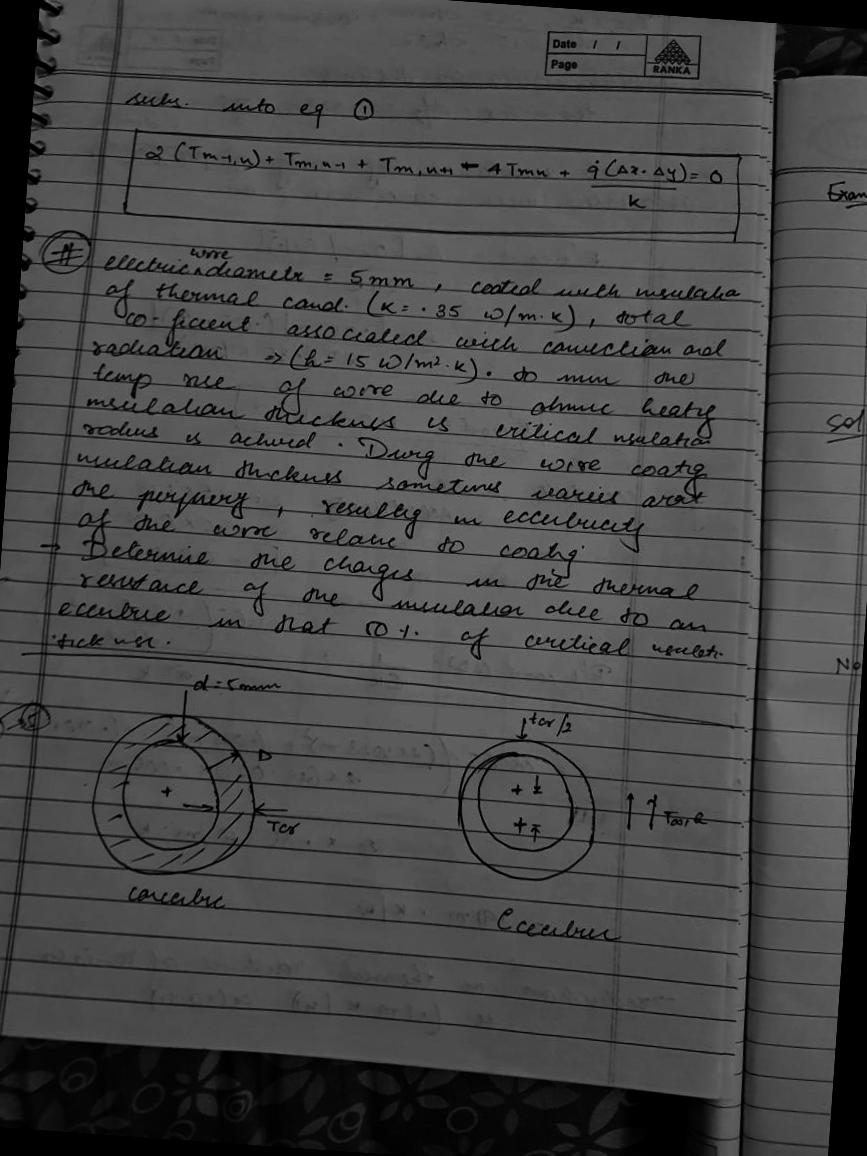 Date / /
Page
RANKA
subs. into eq ①
2 (Tm-1,n) + Tm,n-1 + Tm,n+1 - 4Tmn + q̇(Δx·Δy) = 0
k
Exam
# wire
electric ^ diameter = 5mm, coated with insulatio
of thermal cond. (k = .35 W/m.k), total
co-ficient associated with convection and
radiation => (h = 15 W/m².k). To min the
temp rise of wire due to ohmic heatg
insulation thickness is critical insulation
radius is achived. Durg the wire coatg
insulation thickness sometimes varies arat
the periphery, resultg in eccentricity
of the wire relative to coatg
→ Determine the changes in the thermal
resistance of the insulation due to an
eccentric in that 50% of critical insulati.
tickness.
Sol
No
d = 5mm
D
Tcr
concentric
tcr/2
T∞, h
Eccentric